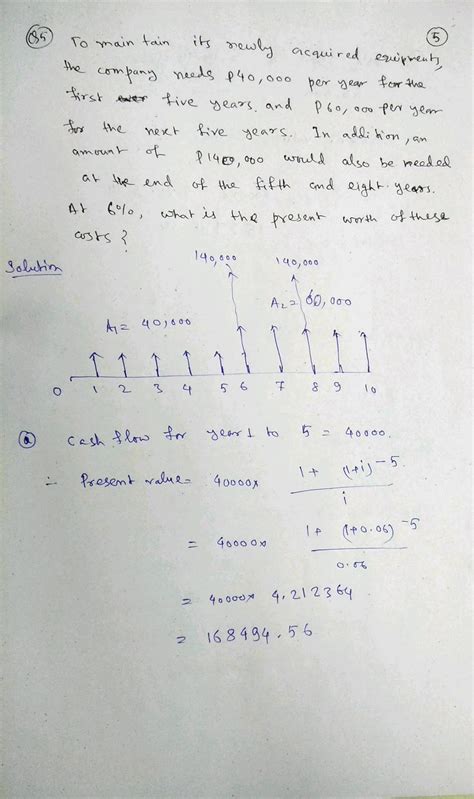 Q5 5
To main tain its newly acquired equipments,
the company needs ₱40,000 per year for the
first five years. and ₱60,000 per year
for the next five years. In addition, an
amount of ₱140,000 would also be needed
at the end of the fifth and eight years.
At 6%, what is the present worth of these
costs?
Solution
140,000 140,000
A2= 60,000
A1= 40,000
0 1 2 3 4 5 6 7 8 9 10
a Cash flow for year 1 to 5 = 40000.
∴ Present value = 40000x (1+ (1+i)^-5)/i
= 40000x (1+ (1+0.06)^-5)/0.06
= 40000x 4.212364
= 168494.56